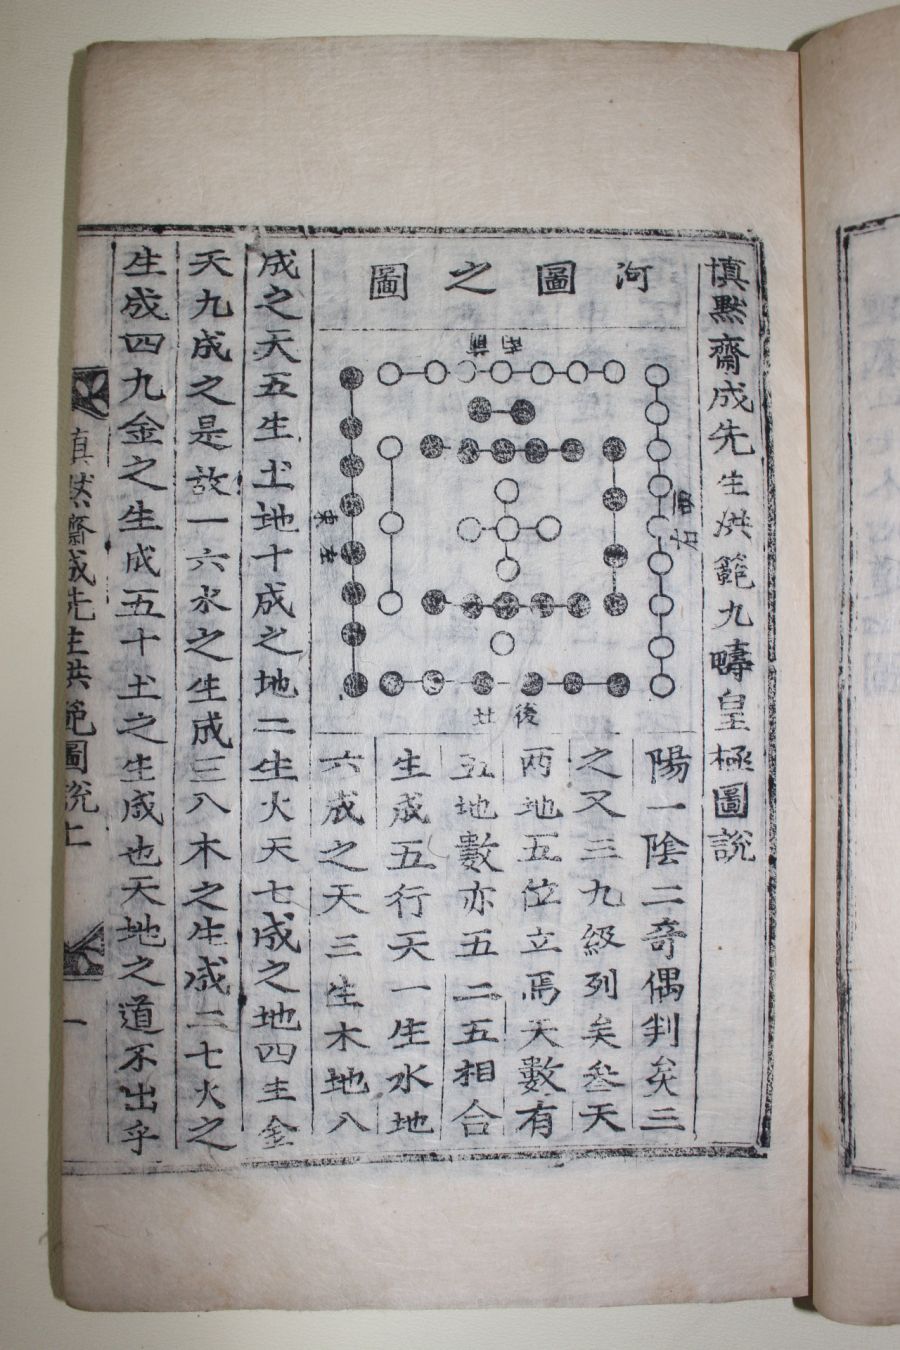 愼默齋成先生洪範九疇皇極圖說
河圖之圖
南前
右西
東左
後北
陽一陰二奇偶判矣三
之又三九級列矣叁天
兩地五位立焉天數有
五地數亦五二五相合
生成五行天一生水地
六成之天三生木地八
成之天五生土地十成之地二生火天七成之地四生金
天九成之是故一六水之生成三八木之生成二七火之
生成四九金之生成五十土之生成也天地之道不出乎
愼默齋成先生洪範圖說上
一